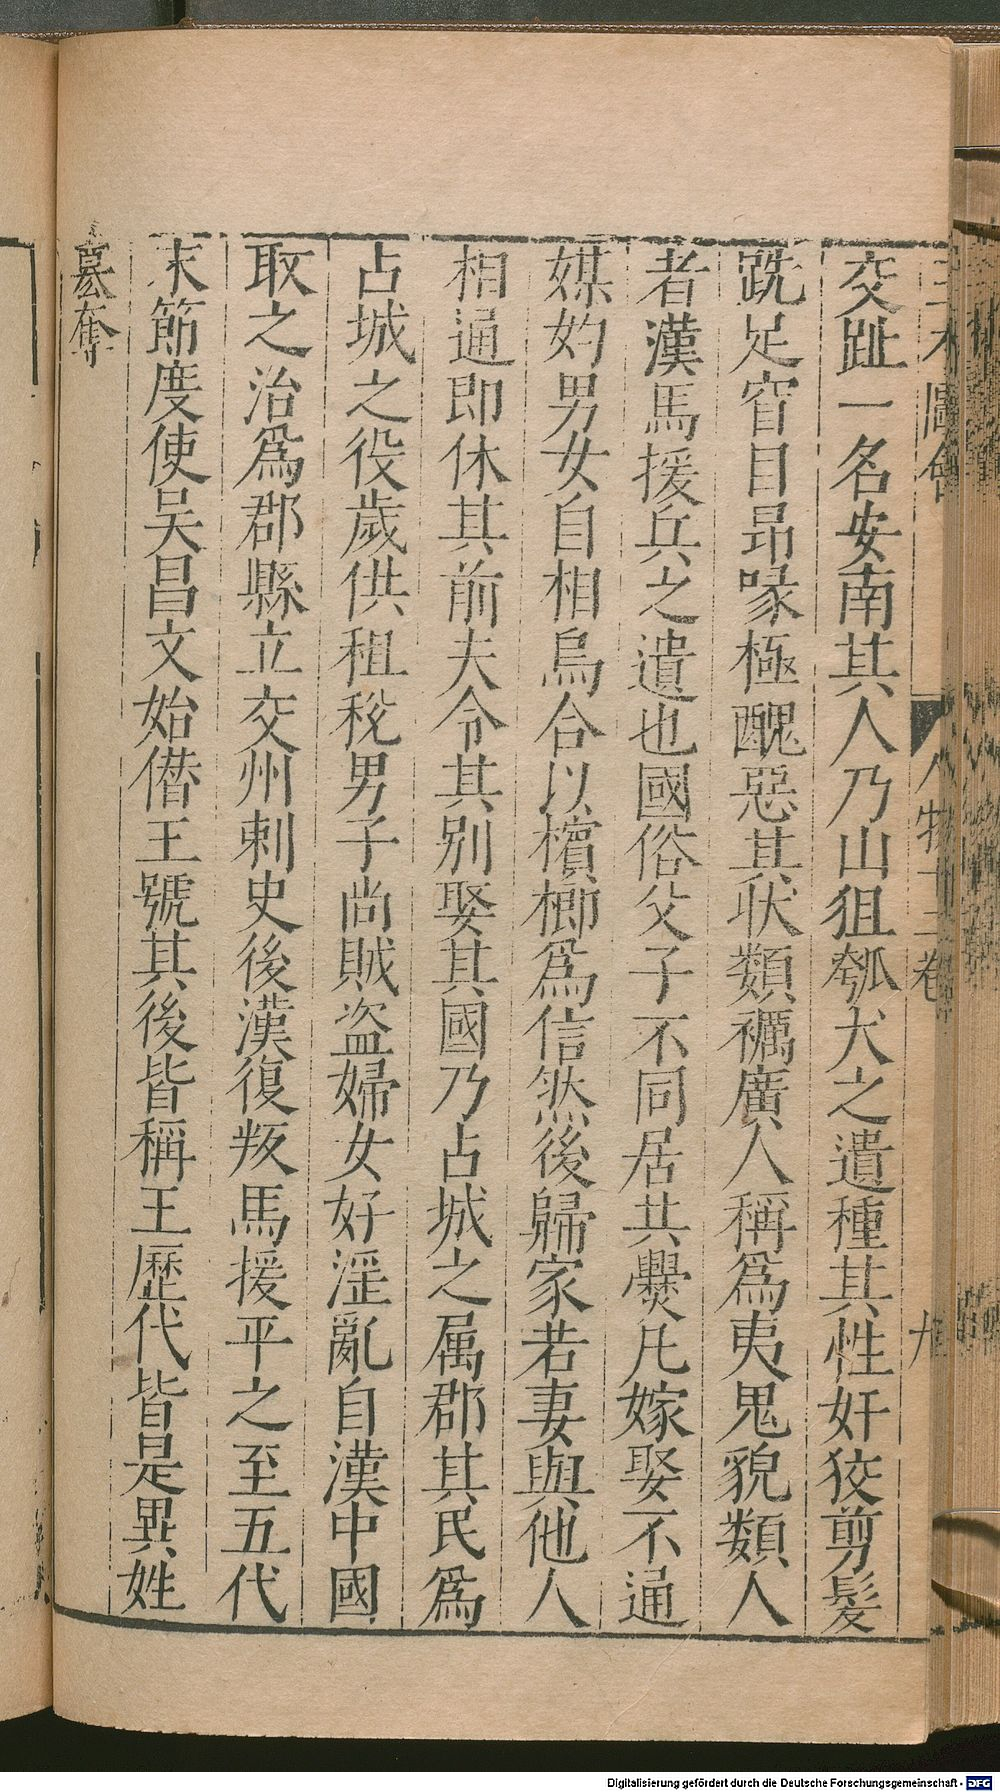 三才圖會 人物十二卷
交趾一名安南其人乃山狙瓠犬之遺種其性奸狡剪髮
跣足窅目昻喙極醜惡其状類禲廣人稱爲夷鬼貌類人
者漢馬援兵之遺也國俗父子不同居共爨凡嫁娶不通
媒妁男女自相烏合以檳榔爲信然後歸家若妻與他人
相通即休其前夫令其别娶其國乃占城之属郡其民爲
占城之役歲供租稅男子尚賊盗婦女好淫亂自漢中國
取之治爲郡縣立交州刺史後漢復叛馬援平之至五代
末節度使吴昌文始僣王號其後皆稱王歷代皆是異姓
篡奪
Digitalisierung gefördert durch die Deutsche Forschungsgemeinschaft - DFG